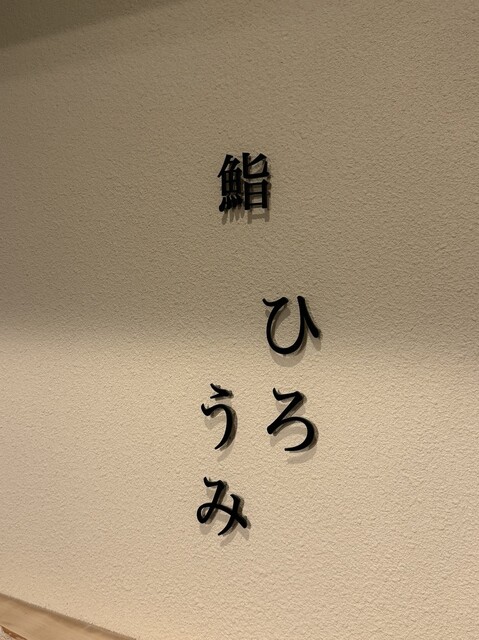 鮨
ひろ
うみ